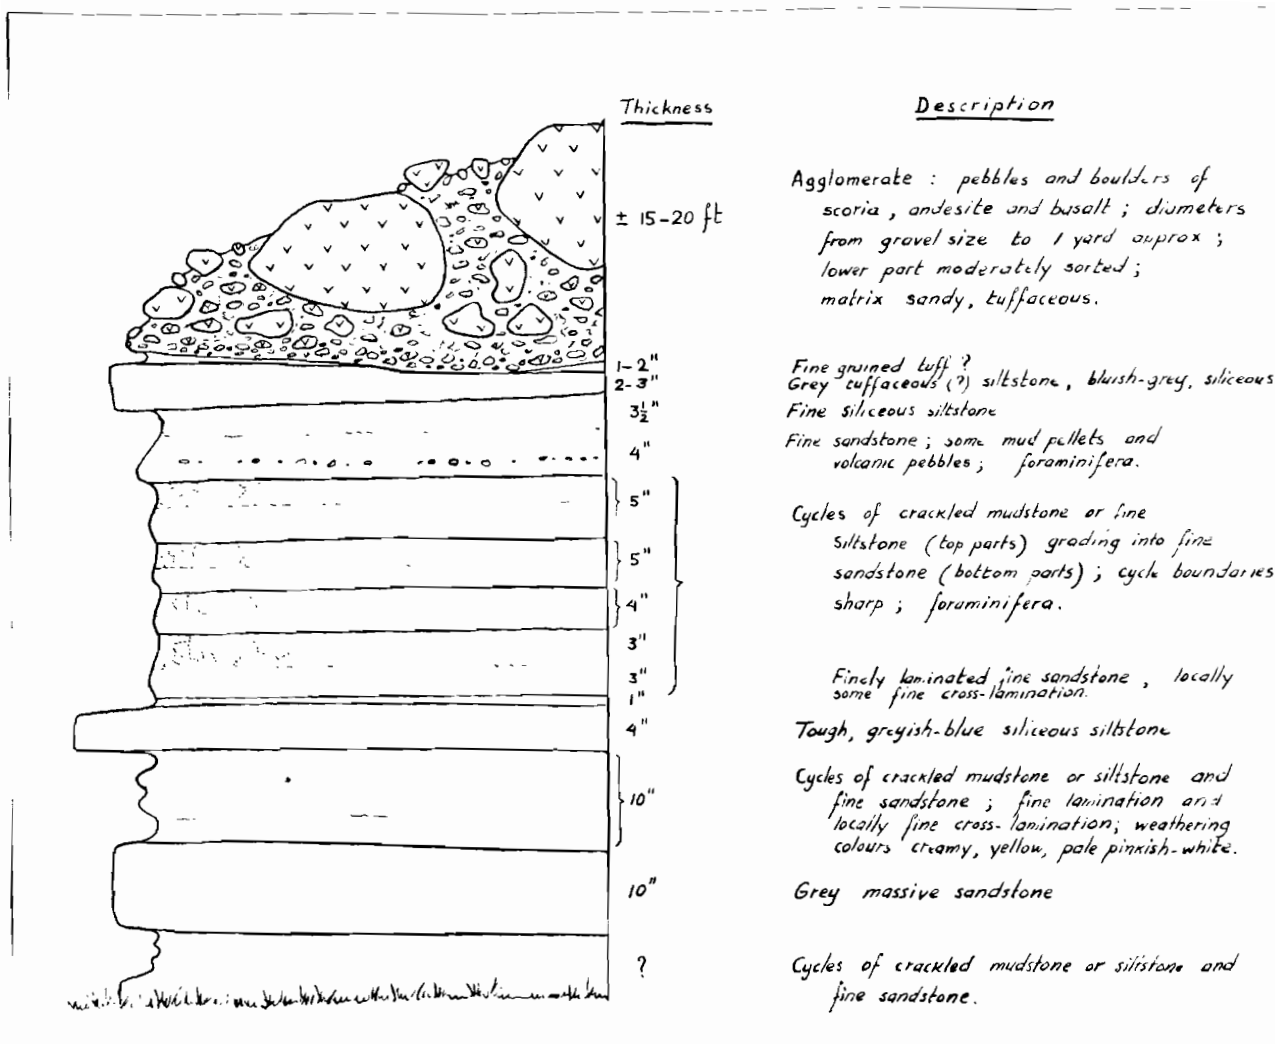 Thickness
Description
± 15-20 ft
Agglomerate : pebbles and boulders of
scoria, andesite and basalt ; diameters
from gravel size to 1 yard approx ;
lower part moderately sorted ;
matrix sandy, tuffaceous.
1-2"
Fine grained tuff ?
2-3"
Grey tuffaceous (?) siltstone, bluish-grey, siliceous
3½"
Fine siliceous siltstone
4"
Fine sandstone ; some mud pellets and
volcanic pebbles ; foraminifera.
5"
5"
4"
3"
3"
Cycles of crackled mudstone or fine
siltstone (top parts) grading into fine
sandstone (bottom parts) ; cycle boundaries
sharp ; foraminifera.
1"
Finely laminated fine sandstone, locally
some fine cross-lamination.
4"
Tough, greyish-blue siliceous siltstone
10"
Cycles of crackled mudstone or siltstone and
fine sandstone ; fine lamination and
locally fine cross-lamination; weathering
colours creamy, yellow, pale pinkish-white.
10"
Grey massive sandstone
?
Cycles of crackled mudstone or siltstone and
fine sandstone.